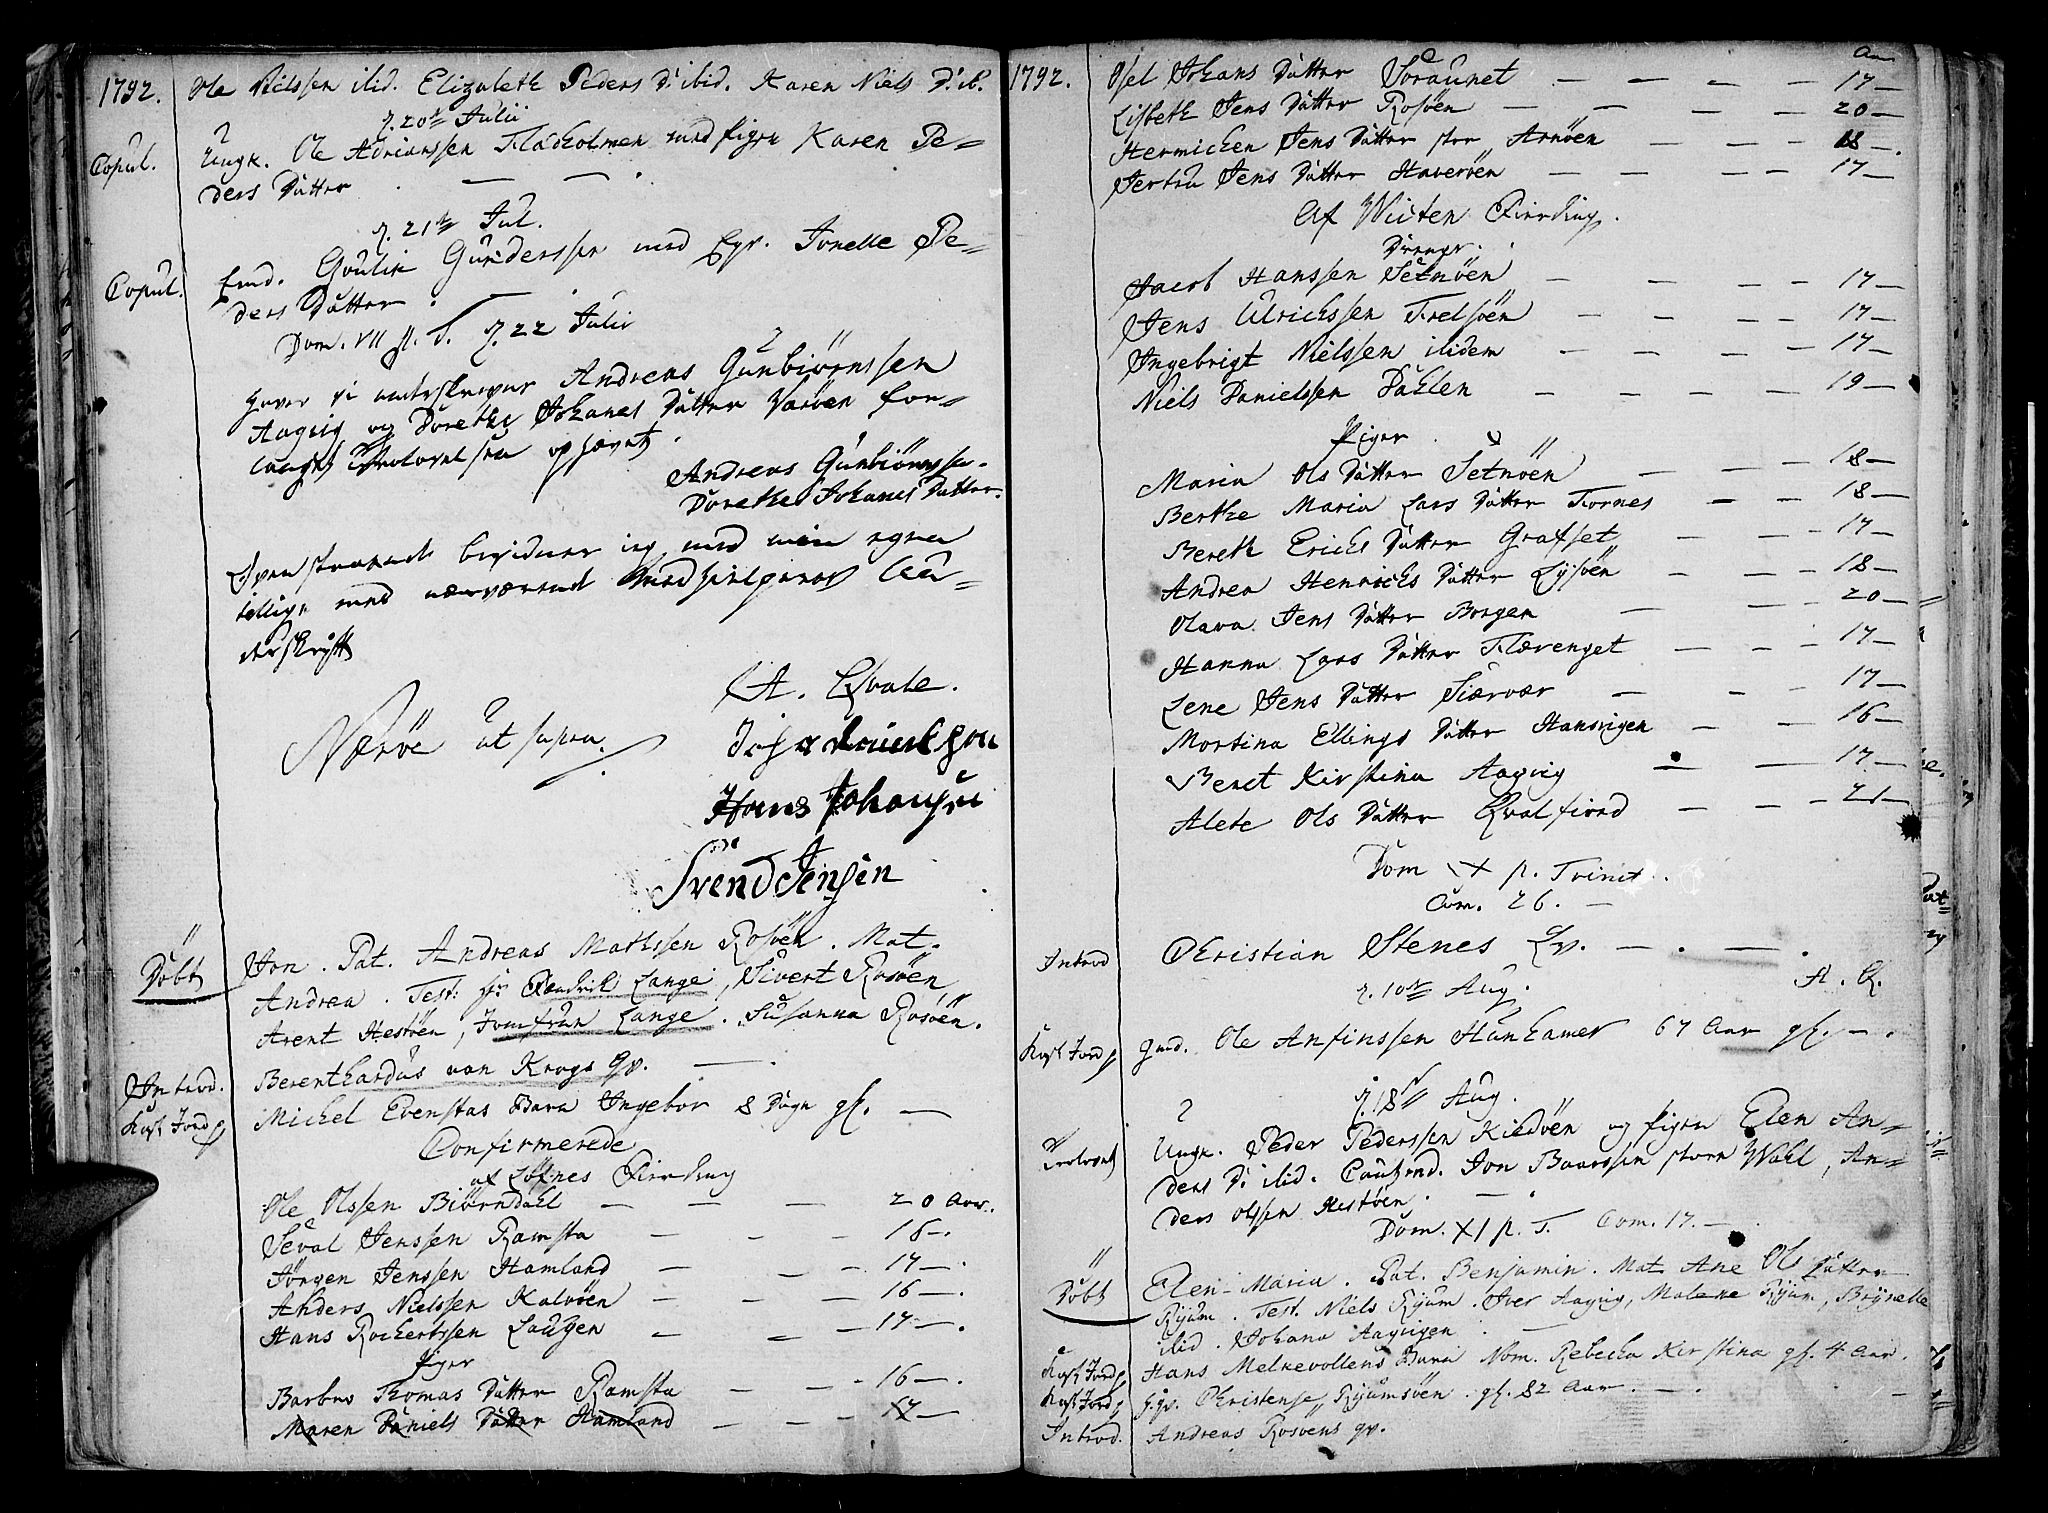 1792.
Ole Nilssen ibid. Elizabeth Peders D. ibid. Karen Niels D. ib.
d. 20de Julii
Copul.
Ungk. Ole Adrianssen Fladholmen med Pigen Karen Pe=
ders Datter
d. 21de Jul.
Copul.
Emd. Goulik Gundersen med Egp. Jonelle Pe=
ders Datter
Dom. VII p. T. d. 22 Julii
Haver vi underskrevne Andreas Gunbiörnssen
Aagvig og Dorethe Johanes Datter Varöen for=
langt Trolovelsen ophævet.
Andreas Gunbiörnssen.
Dorethe Johanes Datter.
Ovenstaaende bevidner jeg med min egen
tillige med nærværende Medhielperes Un=
derskrift
A. Qvale.
Næröe ut supra.
Hans Johansen
Svend Jensen
Döbt
Jon. Pat. Andreas Mathssen Rosöen. Mat.
Andrea. Test: Hr Hendrik Lange, Sivert Rosöen
Arent Hestöen, Jomfrue Lange. Susanna Rosöen.
Introd.
Berenthardus von Krogs qv.
Kast Jord p
Michel Evenstas Barn Ingebor 8 Dage gl.
Confirmerede
af Löfnes Fierding
Ole Olssen Biörndahl 20 Aar.
Seval Jenssen Ramsta 18
Jörgen Jenssen Hamland 17
Anders Nielssen Kalvöen 16
Hans Rochertssen Laugen 17
Piger
Barbro Thomas Datter Ramsta 16
Maren Daniels Datter Hamland 17
1792.
Aar
Osel Johans Datter Soraunet 17
Lisbeth Jens Datter Rosöen 20
Hermichen Jens Datter stor Arnöen 18
Jertru Jens Datter Haveröen 17
Af Wicten Fierding.
Drenge.
Jacob Hanssen Setnöen 17
Jens Ulrichssen Frelsöen 17
Ingebrigt Nielssen ibidem 17
Niels Danielssen Dahlen 19
Piger
Maria Ols Datter Setnöen 18
Berthe Maria Lars Datter Fornes 18
Bereth Erichs Datter Grafset 17
Andrea Henrichs Datter Lysöen 18
Olava Jens Datter Borgen 20
Hanna Lars Datter Flærenget 17
Lene Jens Datter Siærvær 17
Martina Ellings Datter Hansvigen 16
Beret Kirstina Aagvig 17
Alete Ols Datter Qvalfiord 21
Dom X p. Trinit.
Com. 26.
Introd
Christian Stenes Qv.
A. Q.
d. 10de Aug.
Kast Jord p
Gmd. Ole Anfinssen Hunhamer 67 Aar gl.
d. 18de Aug.
Trolovet
Ungk. Peder Pederssen Kiedöen og Pigen Elen An=
ders D. ibid. Caut. end. Jon Baarssen store Wahl, An=
ders Olssen Hestöen.
Dom. XI p. T. Com. 17.
Döbt
Elen-Maria. Pat. Benjamin. Mat Ane Ols Datter
Ryum. Test. Niels Ryum. Iver Aagvig, Malene Ryum, Brynelle
ibid. Johana Aagvigen
Kast Jord p
Hans Melnevollens Barn Nom. Rebecka Kirstina gl. 4 Aar.
Kast Jord p
G. qv. Christense Ryumsöen. gl. 82 Aar.
Introd.
Andreas Rosöens qv.